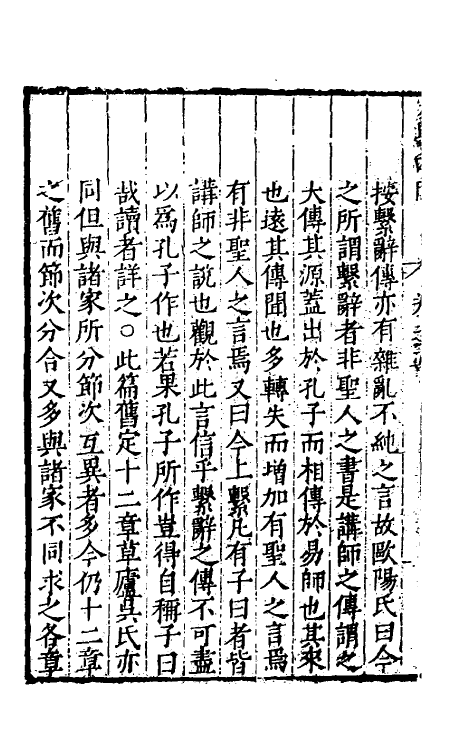 按繫辭傳亦有雜亂不純之言故歐陽氏曰今
之所謂繫辭者非聖人之書是講師之傳謂之
大傳其源蓋出於孔子而相傳於易師也其來
也遠其傳聞也多轉失而增加有聖人之言焉
有非聖人之言焉又曰今上繫凡有子曰者皆
講師之說也觀於此言信乎繫辭之傳不可盡
以為孔子作也若果孔子所作豈得自稱子曰
哉讀者詳之○此篇舊定十二章草廬吳氏亦
同但與諸家所分節次互異者多今仍十二章
之舊而節次分合又多與諸家不同求之各章